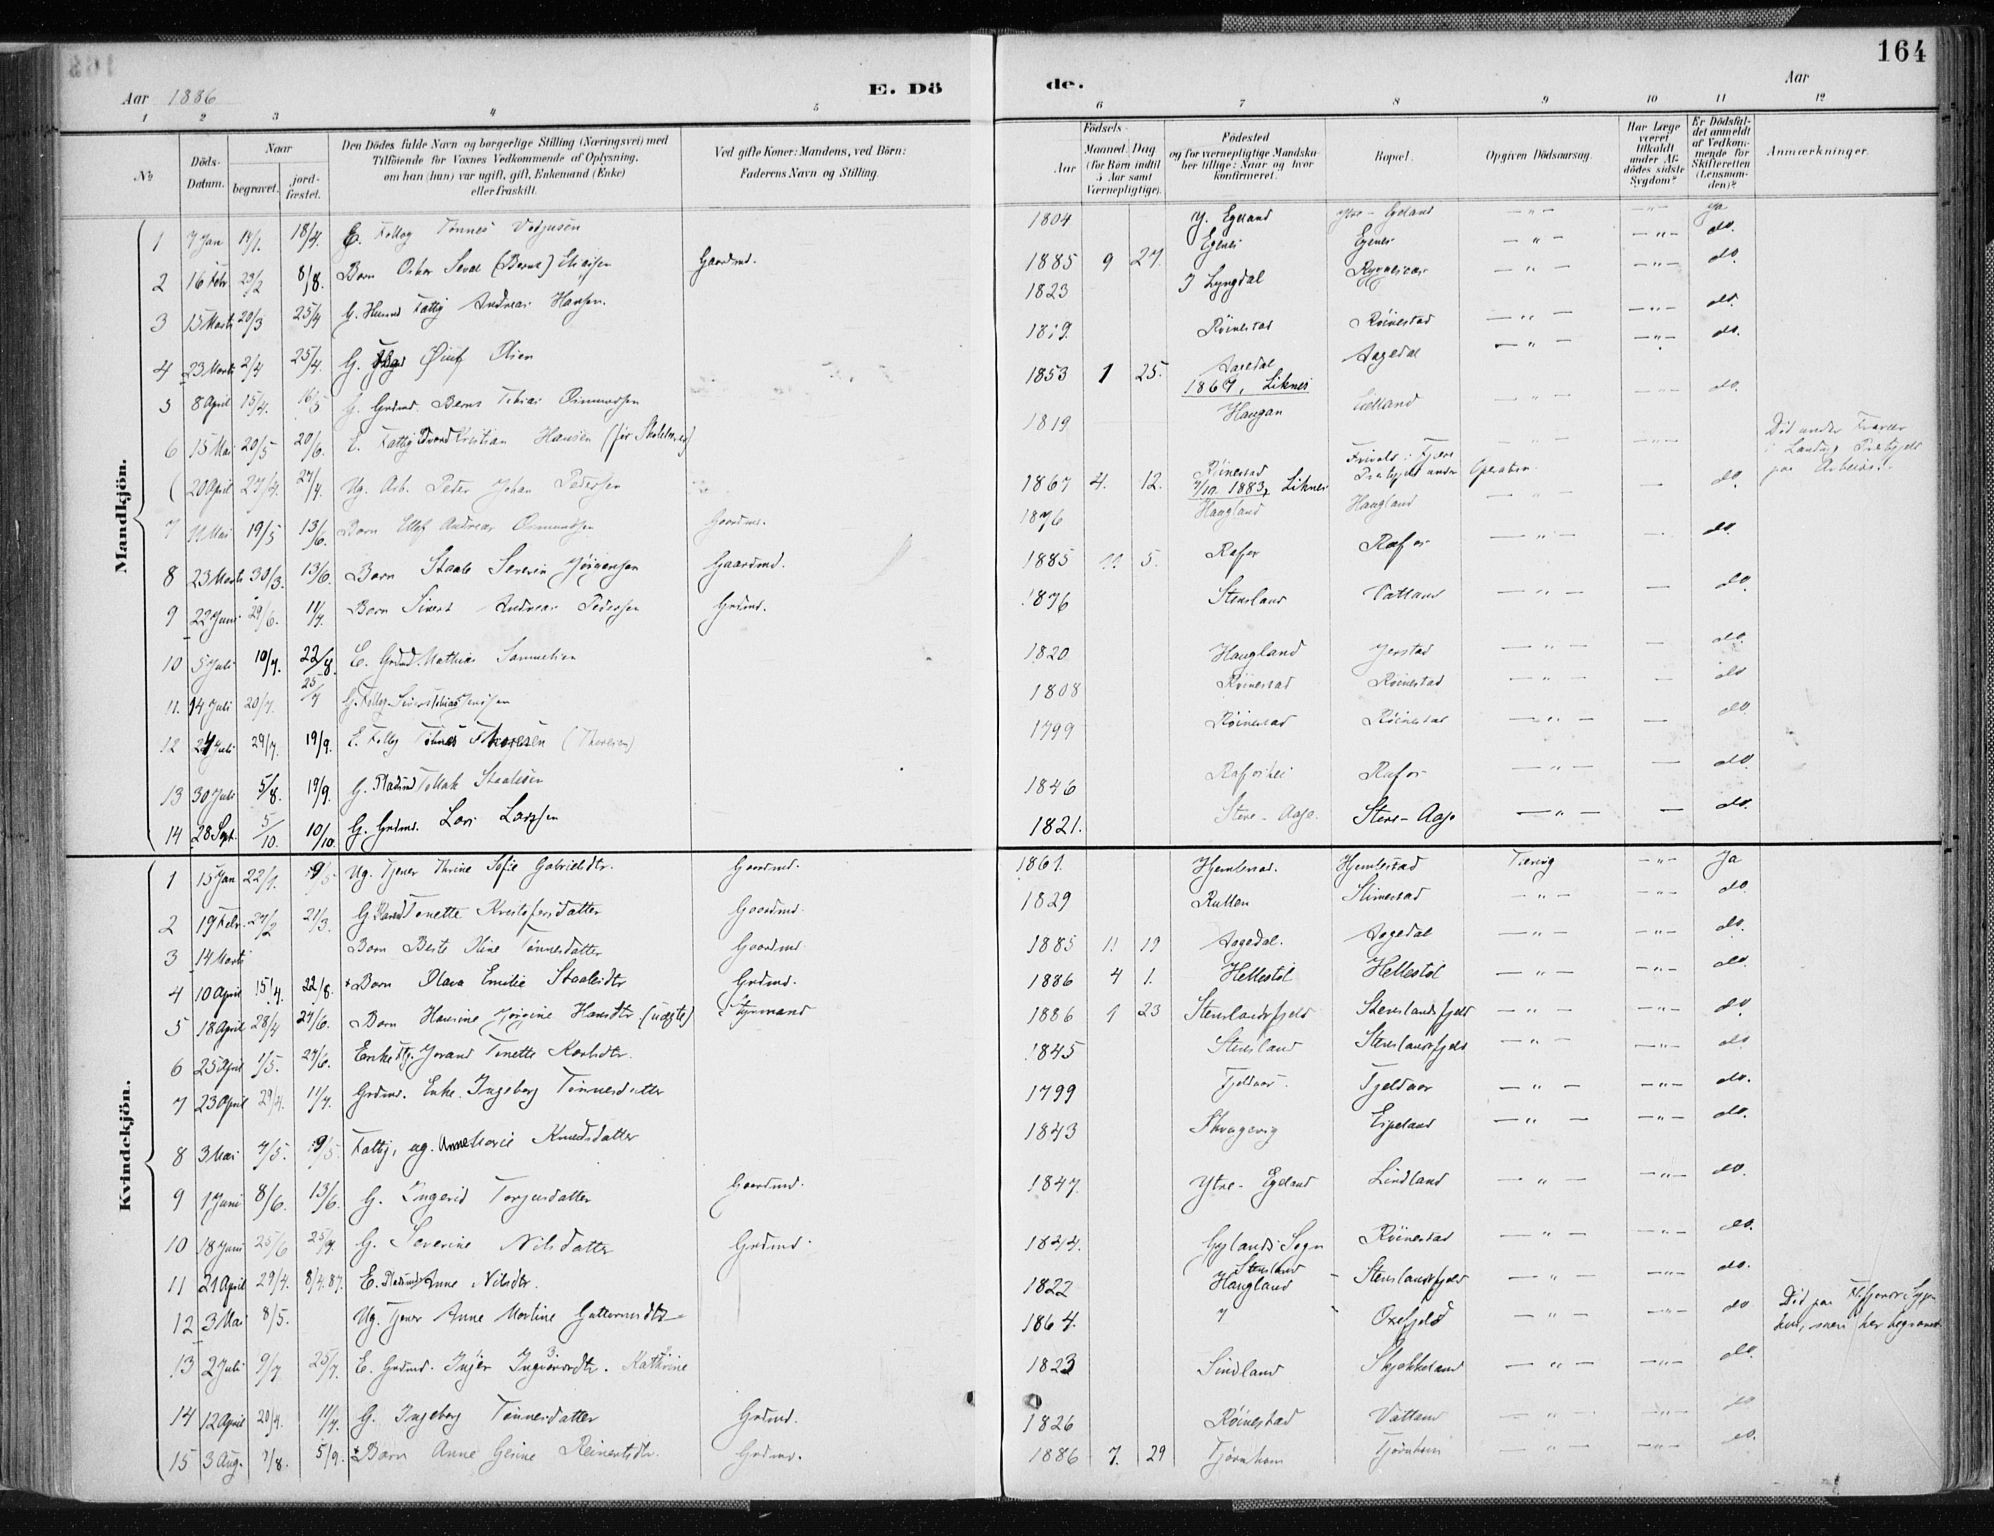 164
Aar 1886
E. Dö
de.
Aar
1 2 3 4 5 6 7 8 9 10 11 12
No
Döds-Datum.
Naar
begravet.
jord-fæstet.
Den Dödes fulde Navn og borgerlige Stilling (Næringsvei) med
Tilföiende for Voxnes Vedkommende af Oplysning,
om han (hun) var ugift, gift, Enkemand (Enke)
eller fraskilt.
Ved gifte Koner: Mandens, ved Börn:
Faderens Navn og Stilling.
Födsels-
Aar
Maaned. Dag
(for Börn indtil
5 Aar samt
Værnepligtige).
Födested
og for værnepligtige Mandska-
ber tillige: Naar og hvor
konfirmeret.
Bopæl.
Opgiven Dödsaarsag.
Har Læge
været
tilkaldt
under Af-
dödes sidste
Sygdom?
Er Dödsfal-
det anmeldt
af Vedkom-
mende for
Skifteretten
(Lensman-
den)?
Anmærkninger.
Mandkjön.
1 7 Jan 14/1. 18/4. E. Tønnes 1804 Y. Egeland Ytre-Egeland — " — — " — Ja
2 16 Febr 23/2 8/8. Barn Oskar (Bernt) Eliasen Gaardmd. 1885 9 27. Egenes Egenes — " — — " — do.
3 15 Marts 20/3 25/4 G. Fattig Andreas Hansen. 1823 I Lyngdal — " — — " — do.
4 23 Marts 2/4 25/4. G. Olsen Røinestad Røinestad — " — — " — do.
5 8 April 15/4. 16/5 G. Grdmd. Bernt Tobias Osmundsen 1853 1 25. Aagedal 1867, Liknes Aagedal — " — — " — do.
6 15 Mai 20/5 20/6. E. Fattig Kristian Hansen 1819 Haugan — " — — " — do.
( 20 April 27/4. 27/4. Ug. Arb. Peder Johan Pedersen 1867 4. 12. Røinestad 1883, Liknes under Operation
Død under
paa Arbeide.
7 11 Mai 19/5 13/6. Barn Andreas Osmundsen Gaardmd. 1876 Haugland Haugland — " — — do.
8 23 Marts 30/3. 13/6. Barn Staale Severin Jörgensen Gaardmd. 1885 11 5. Rafos Rafos — " — — do.
9 22 Juni 29/6. 11/7. Barn Sivert Andreas Pedersen Grdmd. 1876 Stensland Vatland — " — — do.
10 5 Juli 10/7. 22/8. E. Grdmd Mathias Samuelsen 1820 Haugland Jerstad — " — — do.
11. 14 Juli 20/7. 25/7 G. 1808 Røinestad Røinestad — " — — do
12 24 Juli 29/7. 19/9. E. (Thoresen) 1799 Røinestad Røinestad — " — — do
13 30 Juli 5/8. 19/9. G. Pladsmd Tollak Staalesen 1846 Rafoshei Rafos — " — — do.
14 28 Sept. 5/10. 10/10. G. Grdmd. Lars Larssen 1821. Store-Aase. Store-Aase — " — — do.
Kvindekjön.
1 15 Jan 22/1. 9/5 Ug. Tjener Thrine Sofie Gabrielsdtr. Gaardmd. 1861. Hjemlestad. Hjemlestad Tæring — " — Ja
2 19 Febr. 27/2 21/3. G. Tonette Kristofersdatter Gaardmd. 1829 Rullen Slimestad — " — do.
3 14 Marts Barn Berte Oline Tønnesdatter Gaardmd. 1885 11 19 Aagedal. Aagedal — " — — " — do.
4 10 April 15/4. 22/8. Barn Olava Emilie Staalesdtr Grdmd. 1886 4 1. Hellestöl Hellestöl — " — — " — do.
5 18 April 28/4 27/6. Barn Hansine Jørgine Hansdtr. (uægte) 1886 1 23 Stenslandsfjeld Stenslandsfjeld — " — — " — do.
6 25 April 1/5. 27/6. Enke Jorand Tonette Karlsdtr. 1845 Stensland Stenslandsfjeld — " — — " — do.
7 23 April 29/4. 11/7. Grdmd. Enke. Ingeborg Tønnesdatter 1799 Tjeldaas. Tjeldaas — " — — " — do.
8 3 Mai 7/5. 9/5. Fattig, ug. Anne Marie Knudsdatter 1843 Eigeland — " — — " — do.
9 1 Juni 8/6. 13/6. G. Ingerid Torjusdatter Gaardmd. 1847. Ytre-Egeland Lindland — " — — " — do.
10 18 Juni 25/6 25/7. G. Severine Nilsdatter Grdmd. 1844. Gylands Sogn Røinestad — " — — " — do.
11 21 April 29/4. 8/4.87. E. Pladsmd Anne Nilsdtr. 1822 Stensland Haugland Stenslandsfjeld — " — — " — do.
12 3 Mai 8/5. Ug. Tjener Anne Martine Guttormsdtr 1864. " Oxefjeld — " — — " — do
Død paa
hus, men her begravet
13 2 Juli 9/7 25/7. E. Grdmd. Inger Ingvarsdtr. Kathrine 1823 Sindland Skjekkeland — " — — " — do.
14 12 April 20/4. 11/7. G. Ingeborg Tønnesdatter Grdmd. 1826 Røinestad Vatland — " — — " — do
15 3 Aug. 7/8. 5/9. Barn Anne Gesine Reinertsdtr. Grdmd. 1886 7. 29 Tjørnhom Tjørnhom — " — — " — do.